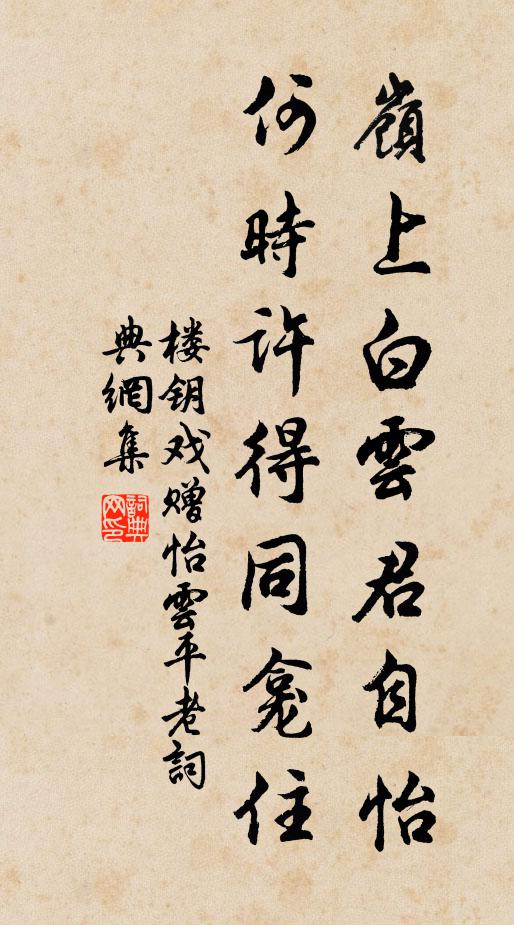 嶺上白雲君自怡
何時許得同龕住
楼钥戏赠怡雲平老詞
典網集
詞典網印